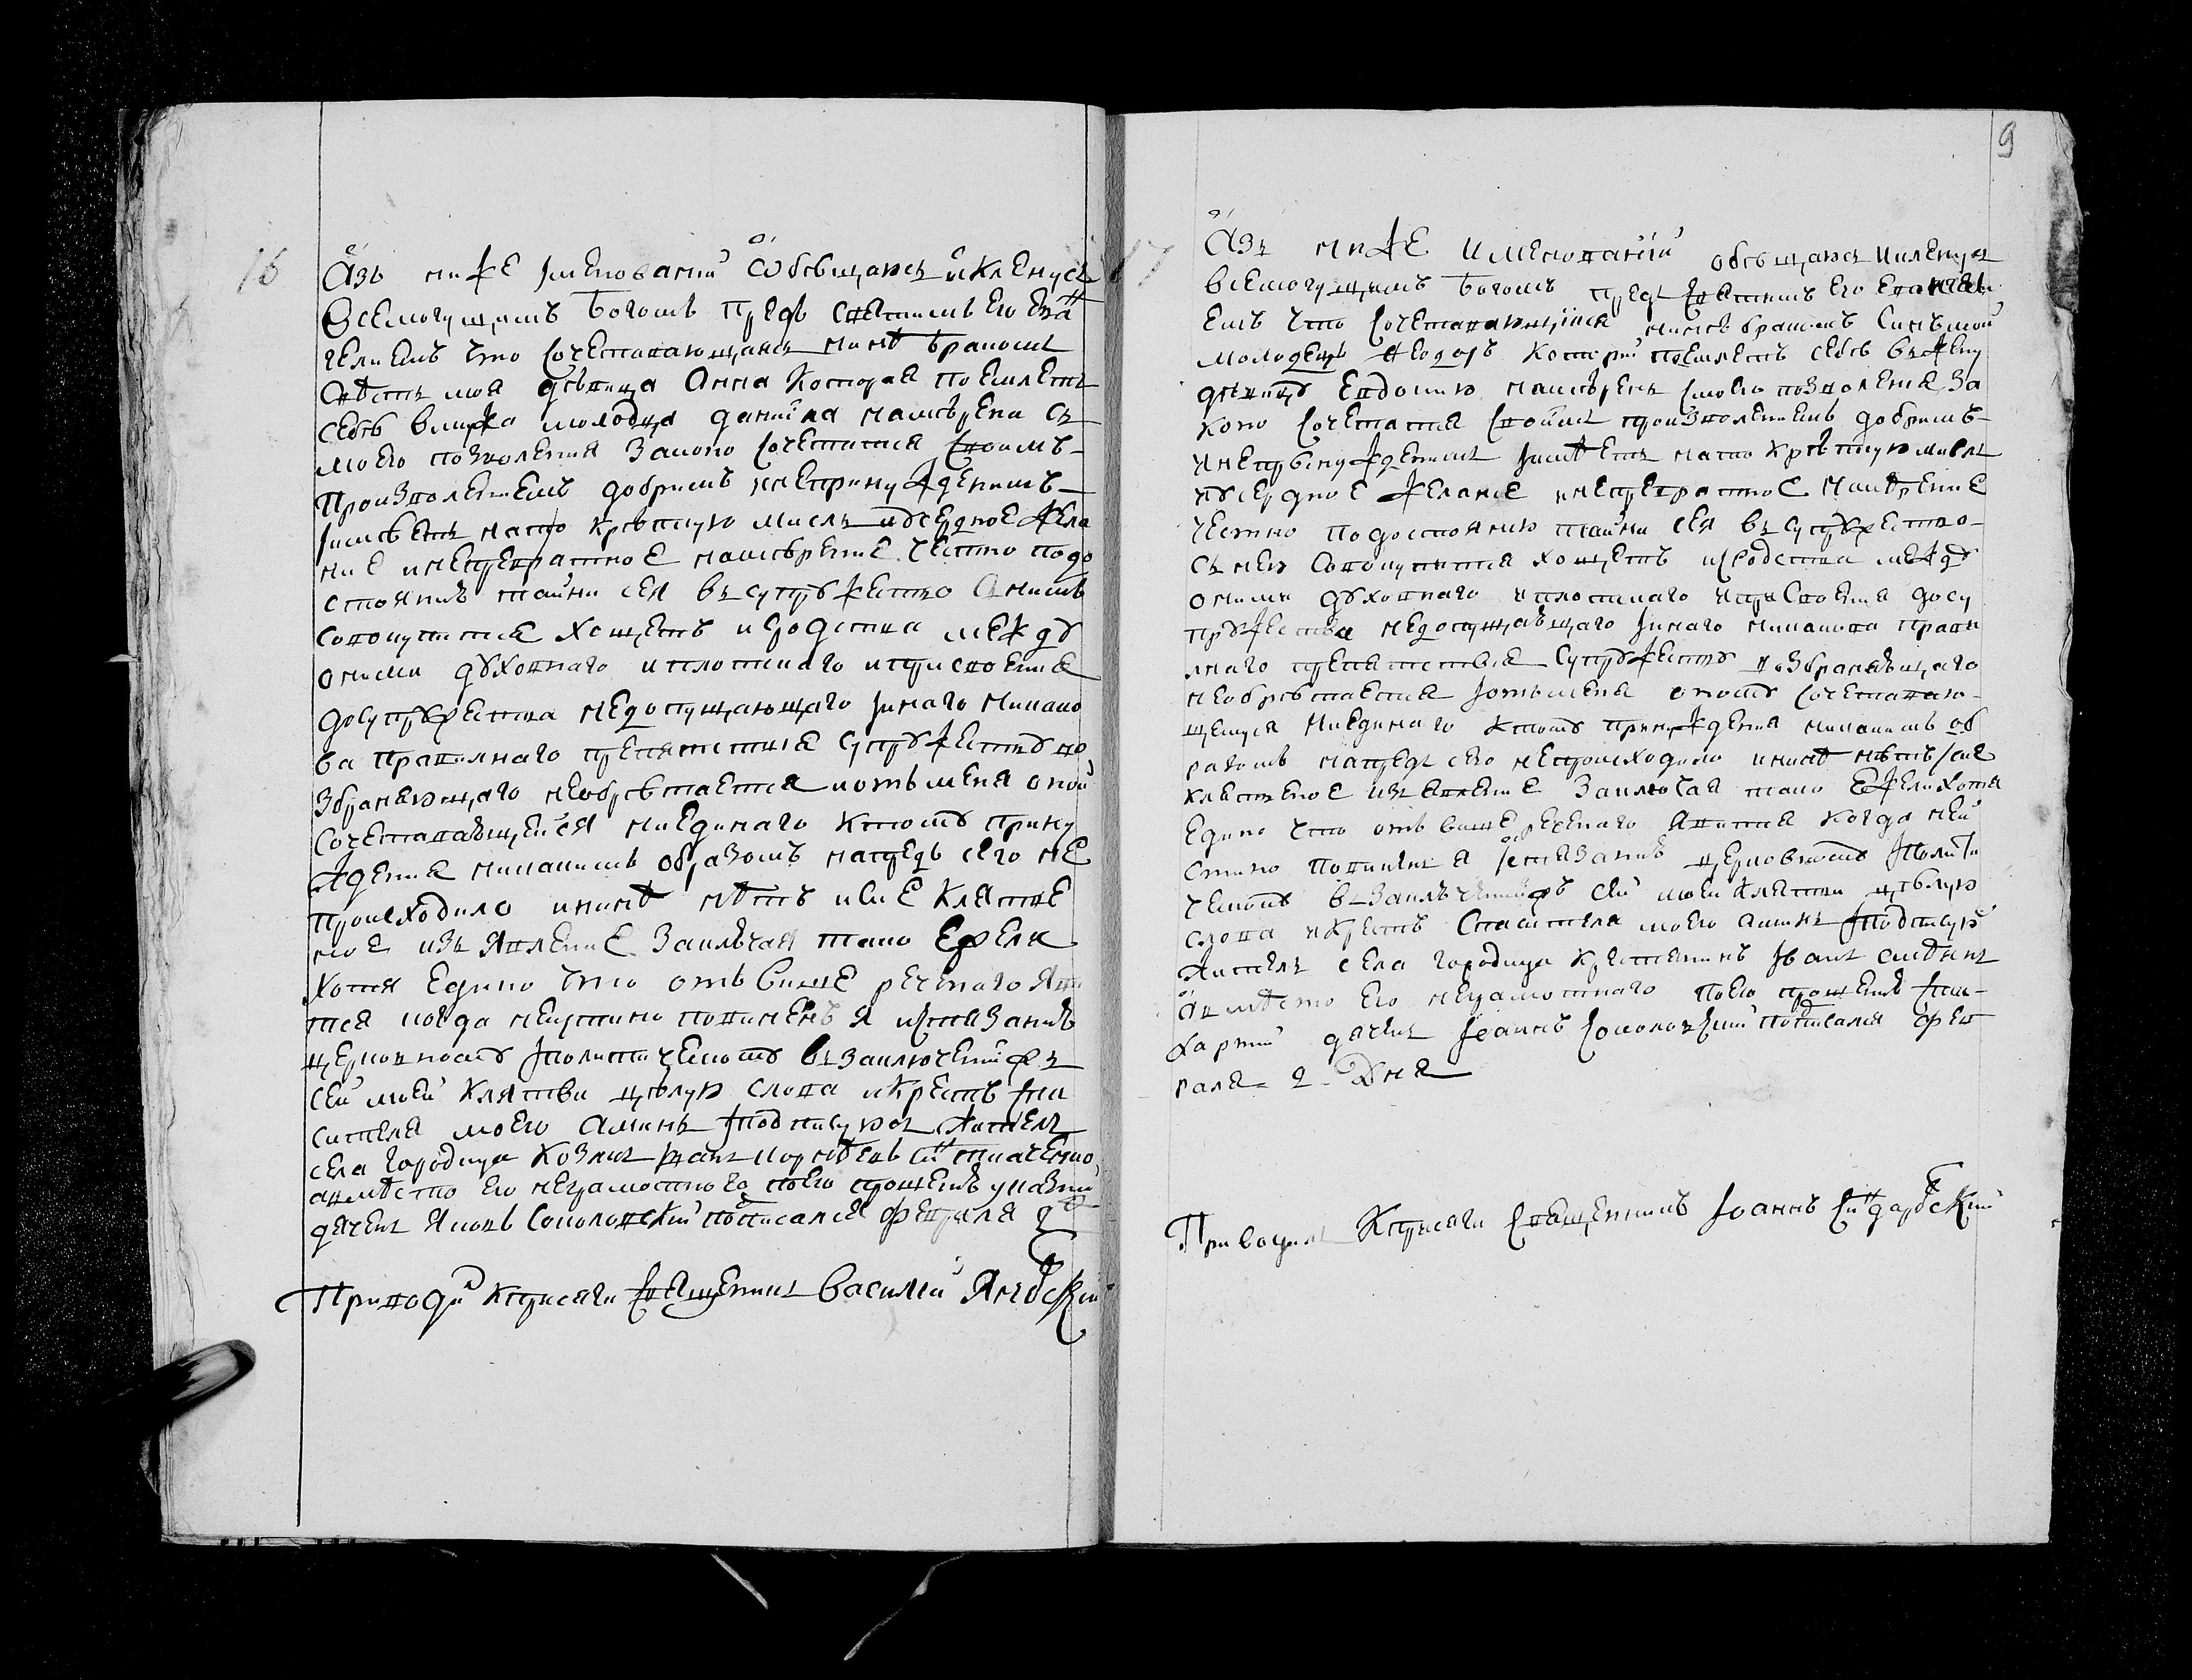 16
Азъ ниже именованній обѣщаюсь и кленусь
Всемогущимъ Богомъ предъ святимъ его еван
гелиемъ что сочетавающаясь ннѣ бракомъ
свѣсть моя дѣвица Анна которая поемлетъ
себѣ вмужа молодца даниила намѣрена съ
моего позволения законо сочетатися своимъ
произволениемъ добримъ инепринужденимъ
имѣетъ на то крѣпкую мисль иусердное жела
ние инепревратное намѣрение честно подо
стоянию тайни сея въ супружество снимъ
совокупится хощетъ исродства между
оними духовнаго иплотнаго иприсвоения
досупружества недопущающаго инаго никако
ва правилнаго препятствия супружеству во
збраняющаго необрѣтается иотъ мена оной
сочетавающейся ниединаго ктому прину
ждения никакимъ образомъ напредъ сего не
происходило ининѣ нѣтъ исие клятве
ное изъявление заключая тако Ежели
хотя едино что отъ више реченаго яви
тся когда неистино повиненъ я истязанию
церковному иполитическому въ заключение жъ
сей моей клятви цѣлую слова икрестъ спа
сителя моего аминь подписуюсь житель
села городища
авмѣсто его неграмотного поего прошению указний
дячекъ Яковъ Соколовский подписался февраля 2
Приводил кприсяги священникъ Василий
9
17
Азъ ниже именованній обѣщаюсь икленусь
всемогущимъ Богомъ предъ святимъ его евангели
емъ что сочетавающийся нинѣ бракомъ синъ мой
молодецъ Федоръ которий поемлетъ себѣ въ жену
дѣвицу Евдокию намѣренъ смоего позволения за
коно сочетатся своимъ произволениемъ добримъ
инепринужденимъ имѣетъ на то крѣпкую мисль
иусердное желание инепревратное намѣрение
честно подостоянию тайни сея въ супружество
сънею совокупится хощетъ исродства между
оними духовнаго иплотнаго иприсвоения досу
пружества недопущающаго инаго никакова прави
лнаго препятствия супружеству возбраняющаго
необрѣтается иотъ мена оному сочетаваю
щемуся ниединаго ктому принуждения никакимъ об
разомъ напредъ сего непроисходило ининѣ нѣтъ исие
клятвеное изъявление заключая тако Ежели хотя
едино что отъ вишереченаго явится когда неи
стино повиненъ я истязанию церковному иполити
ческому въ заключение жъ сей моей клятви цѣлую
слова икрестъ Спасителя моего аминь подписую
житель села городища Иванъ
авмѣсто его неграмотнаго поего прошению
дячекъ Иоанъ Соколовский подписался фев
раля 2 Дня
Приводилъ Кприсяги священникъ Иоаннъ